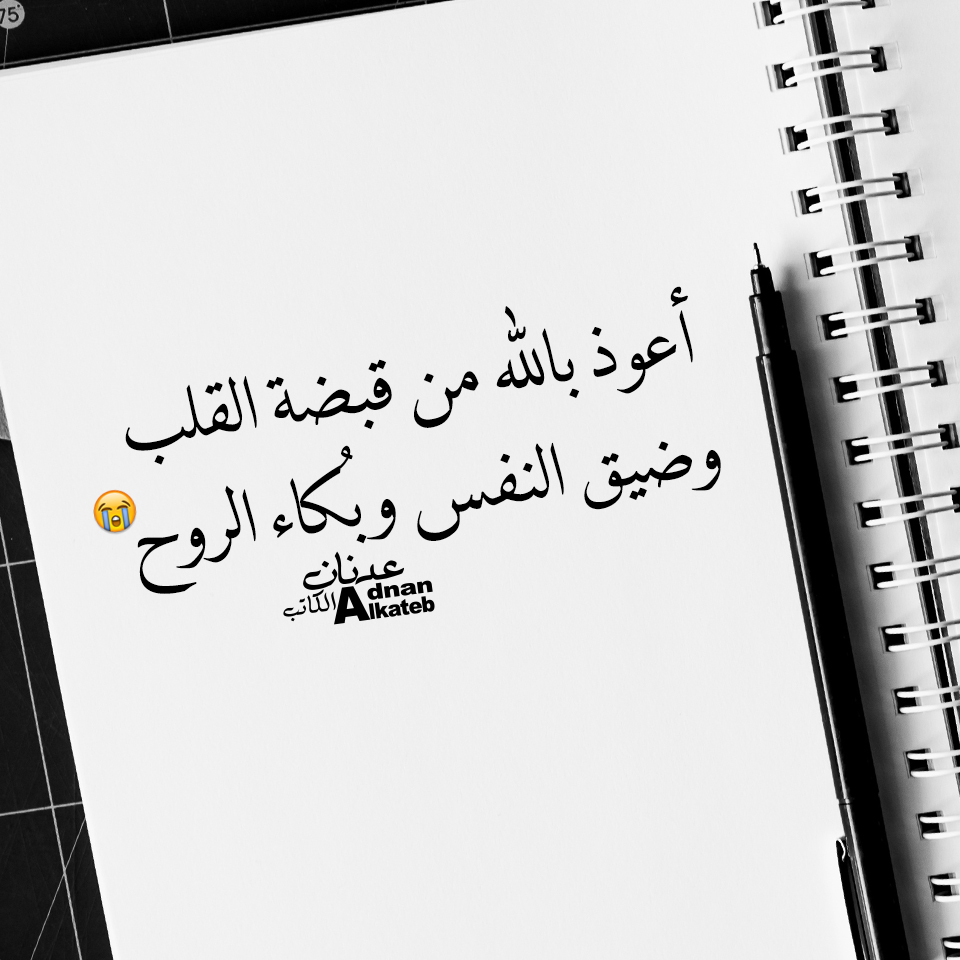 75°
أعوذ بالله من قبضة القلب
وضيق النفس وبُكاء الروح 😭
عدنان
الكاتب
Adnan
Alkateb